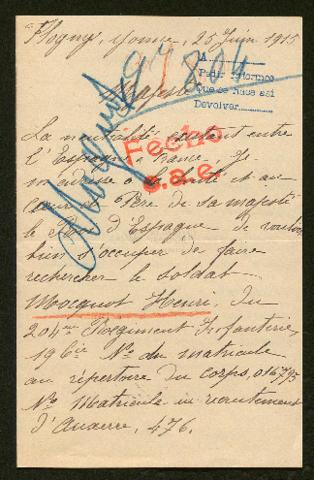 Flogny, Yonne, 25 Juin 1915
97804
A
Pedir informes
Que se nous así
Devolver
Majesté
La neutralité existant entre
Fecho
l'Espagne & France, Je
s.a.e.
m'adresse à la bonté et au
cœur de Père de sa majesté
le Roi d'Espagne de vouloir
bien s'occuper de faire
rechercher le soldat
Mocquot Henri, du
204me Régiment Infanterie,
19 6ie No du matricule
au répertoire du corps, 016795
No Matricule au recrutement
d'Auxerre, 476.
Mocquot